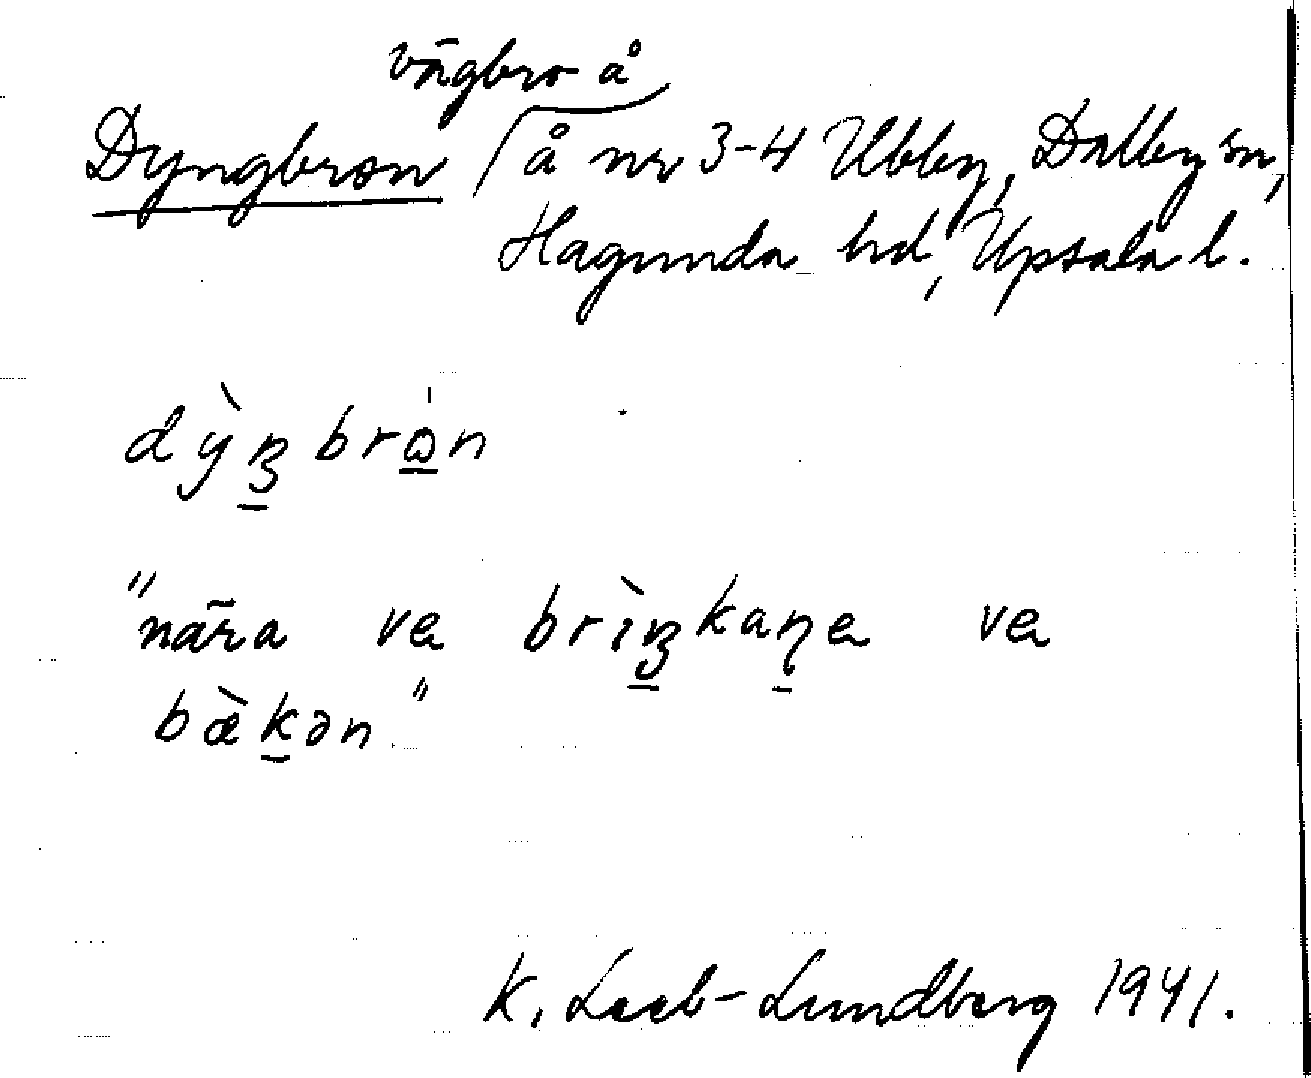 vägbro å
Dyngbron å nr 3-4 Ubby, Dalby sn,
Hagunda hd, Upsala l.
dỳŋbrω̇n
"nāra va brìŋkaṇa va
bæ̀kən"
K. Leeb-Lundberg 1941.